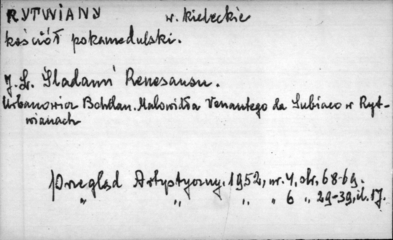 RYTWIANY w. kieleckie
kościół pokamedulski.
J. Ś. Śladami Renesansu.
Urbanowicz Bohdan. Malowidła Venantego da Subiaco w Ryt-
wianach
Przegląd Artystyczny. 1952, nr. 4, str. 68-69.
" " " " 6 " 29-39, il. 17.